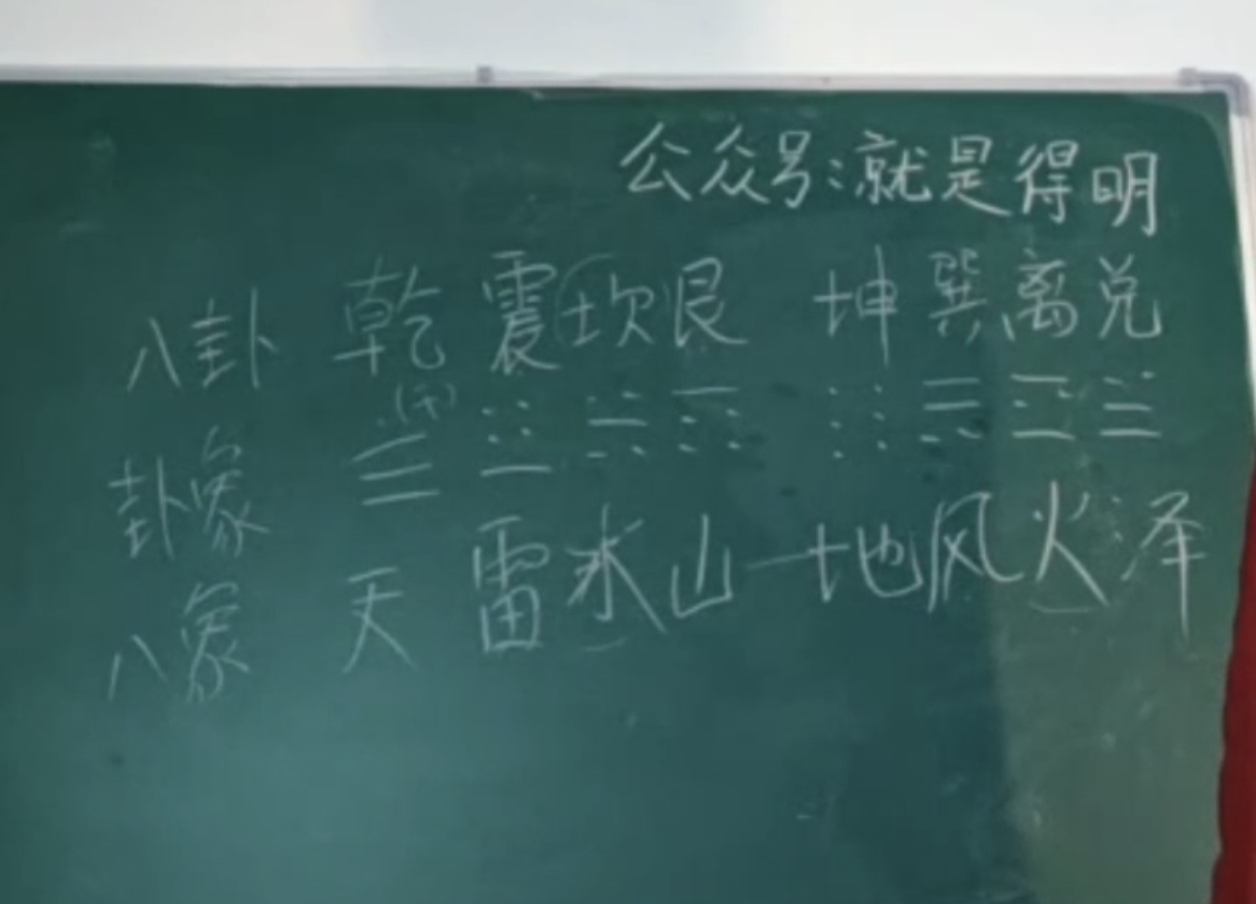 公众号:就是得明
八卦 乾 震 坎 艮 坤 巽 离 兑
卦象 ☰ ☳ ☵ ☶ ☷ ☴ ☲ ☱
八象 天 雷 水 山 地 风 火 泽